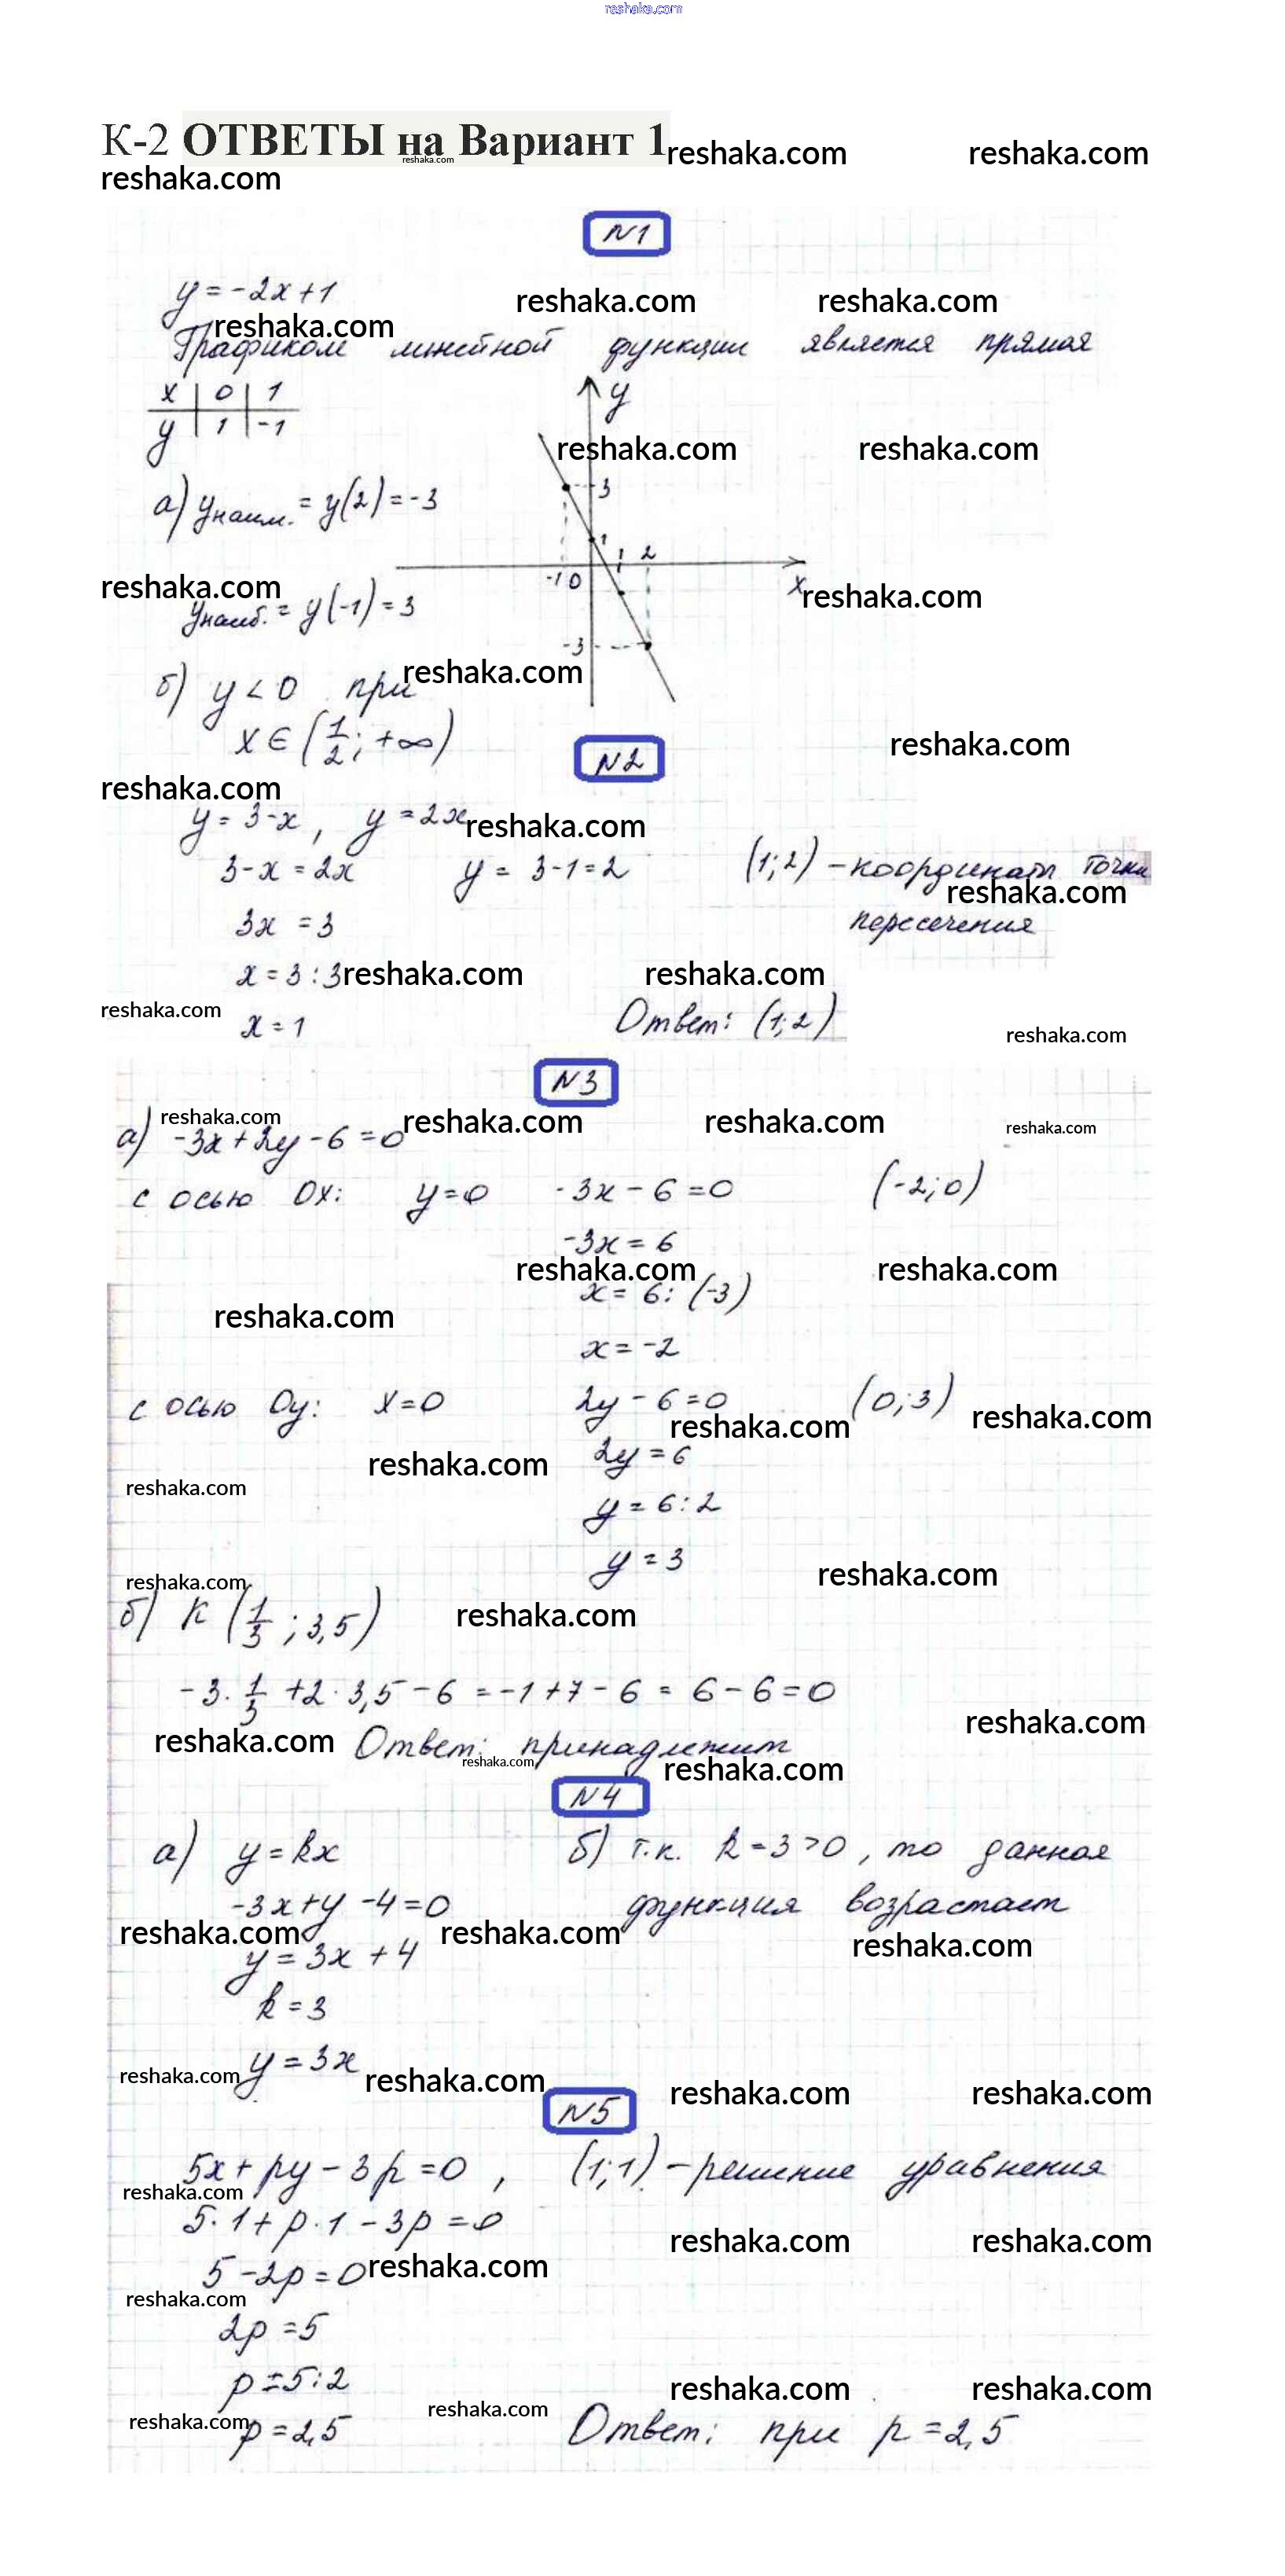 reshaka.com
К-2 ОТВЕТЫ на Вариант 1
reshaka.com reshaka.com reshaka.com
reshaka.com
N1
y = -2x + 1
reshaka.com reshaka.com
reshaka.com
Графиком линейной функции является прямая
x | 0 | 1
y | 1 | -1
y
reshaka.com reshaka.com
3
а) yнаим. = y(2) = -3
1
1 2
-1 0
x
reshaka.com reshaka.com
yнаиб. = y(-1) = 3
-3
reshaka.com
б) y < 0 при
x ∈ (1/2; +∞)
N2
reshaka.com
reshaka.com
y = 3-x, y = 2x
reshaka.com
3-x = 2x y = 3-1 = 2 (1; 2) - координат точки
reshaka.com
3x = 3 пересечения
x = 3 : 3
reshaka.com reshaka.com
reshaka.com
x = 1 Ответ: (1; 2)
reshaka.com
N3
reshaka.com reshaka.com reshaka.com reshaka.com
а) -3x + 2y - 6 = 0
с осью Ox: y = 0 -3x - 6 = 0 (-2; 0)
-3x = 6
reshaka.com reshaka.com
x = 6 : (-3)
reshaka.com
x = -2
с осью Oy: x = 0 2y - 6 = 0 (0; 3)
reshaka.com reshaka.com
2y = 6
reshaka.com
reshaka.com
y = 6 : 2
y = 3
reshaka.com
reshaka.com
б) K (1/3; 3,5)
reshaka.com
-3 · 1/3 + 2 · 3,5 - 6 = -1 + 7 - 6 = 6 - 6 = 0
reshaka.com
reshaka.com Ответ: принадлежит
reshaka.com reshaka.com
N4
а) y = kx б) т.к. k = 3 > 0, то данная
-3x + y - 4 = 0 функция возрастает
reshaka.com reshaka.com reshaka.com
y = 3x + 4
k = 3
y = 3x
reshaka.com reshaka.com reshaka.com reshaka.com
N5
5x + py - 3p = 0, (1; 1) - решение уравнения
reshaka.com
5 · 1 + p · 1 - 3p = 0
reshaka.com reshaka.com
5 - 2p = 0
reshaka.com
reshaka.com
2p = 5
p = 5 : 2
reshaka.com reshaka.com
reshaka.com reshaka.com
p = 2,5 Ответ: при p = 2,5